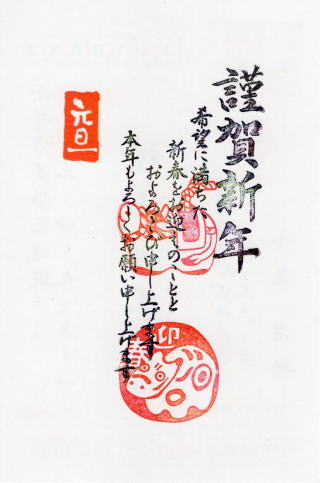 謹賀新年
希望に満ちた
新春をお迎えのことと
およろこび申し上げます
本年もよろしくお願い申し上げます
元旦
迎春